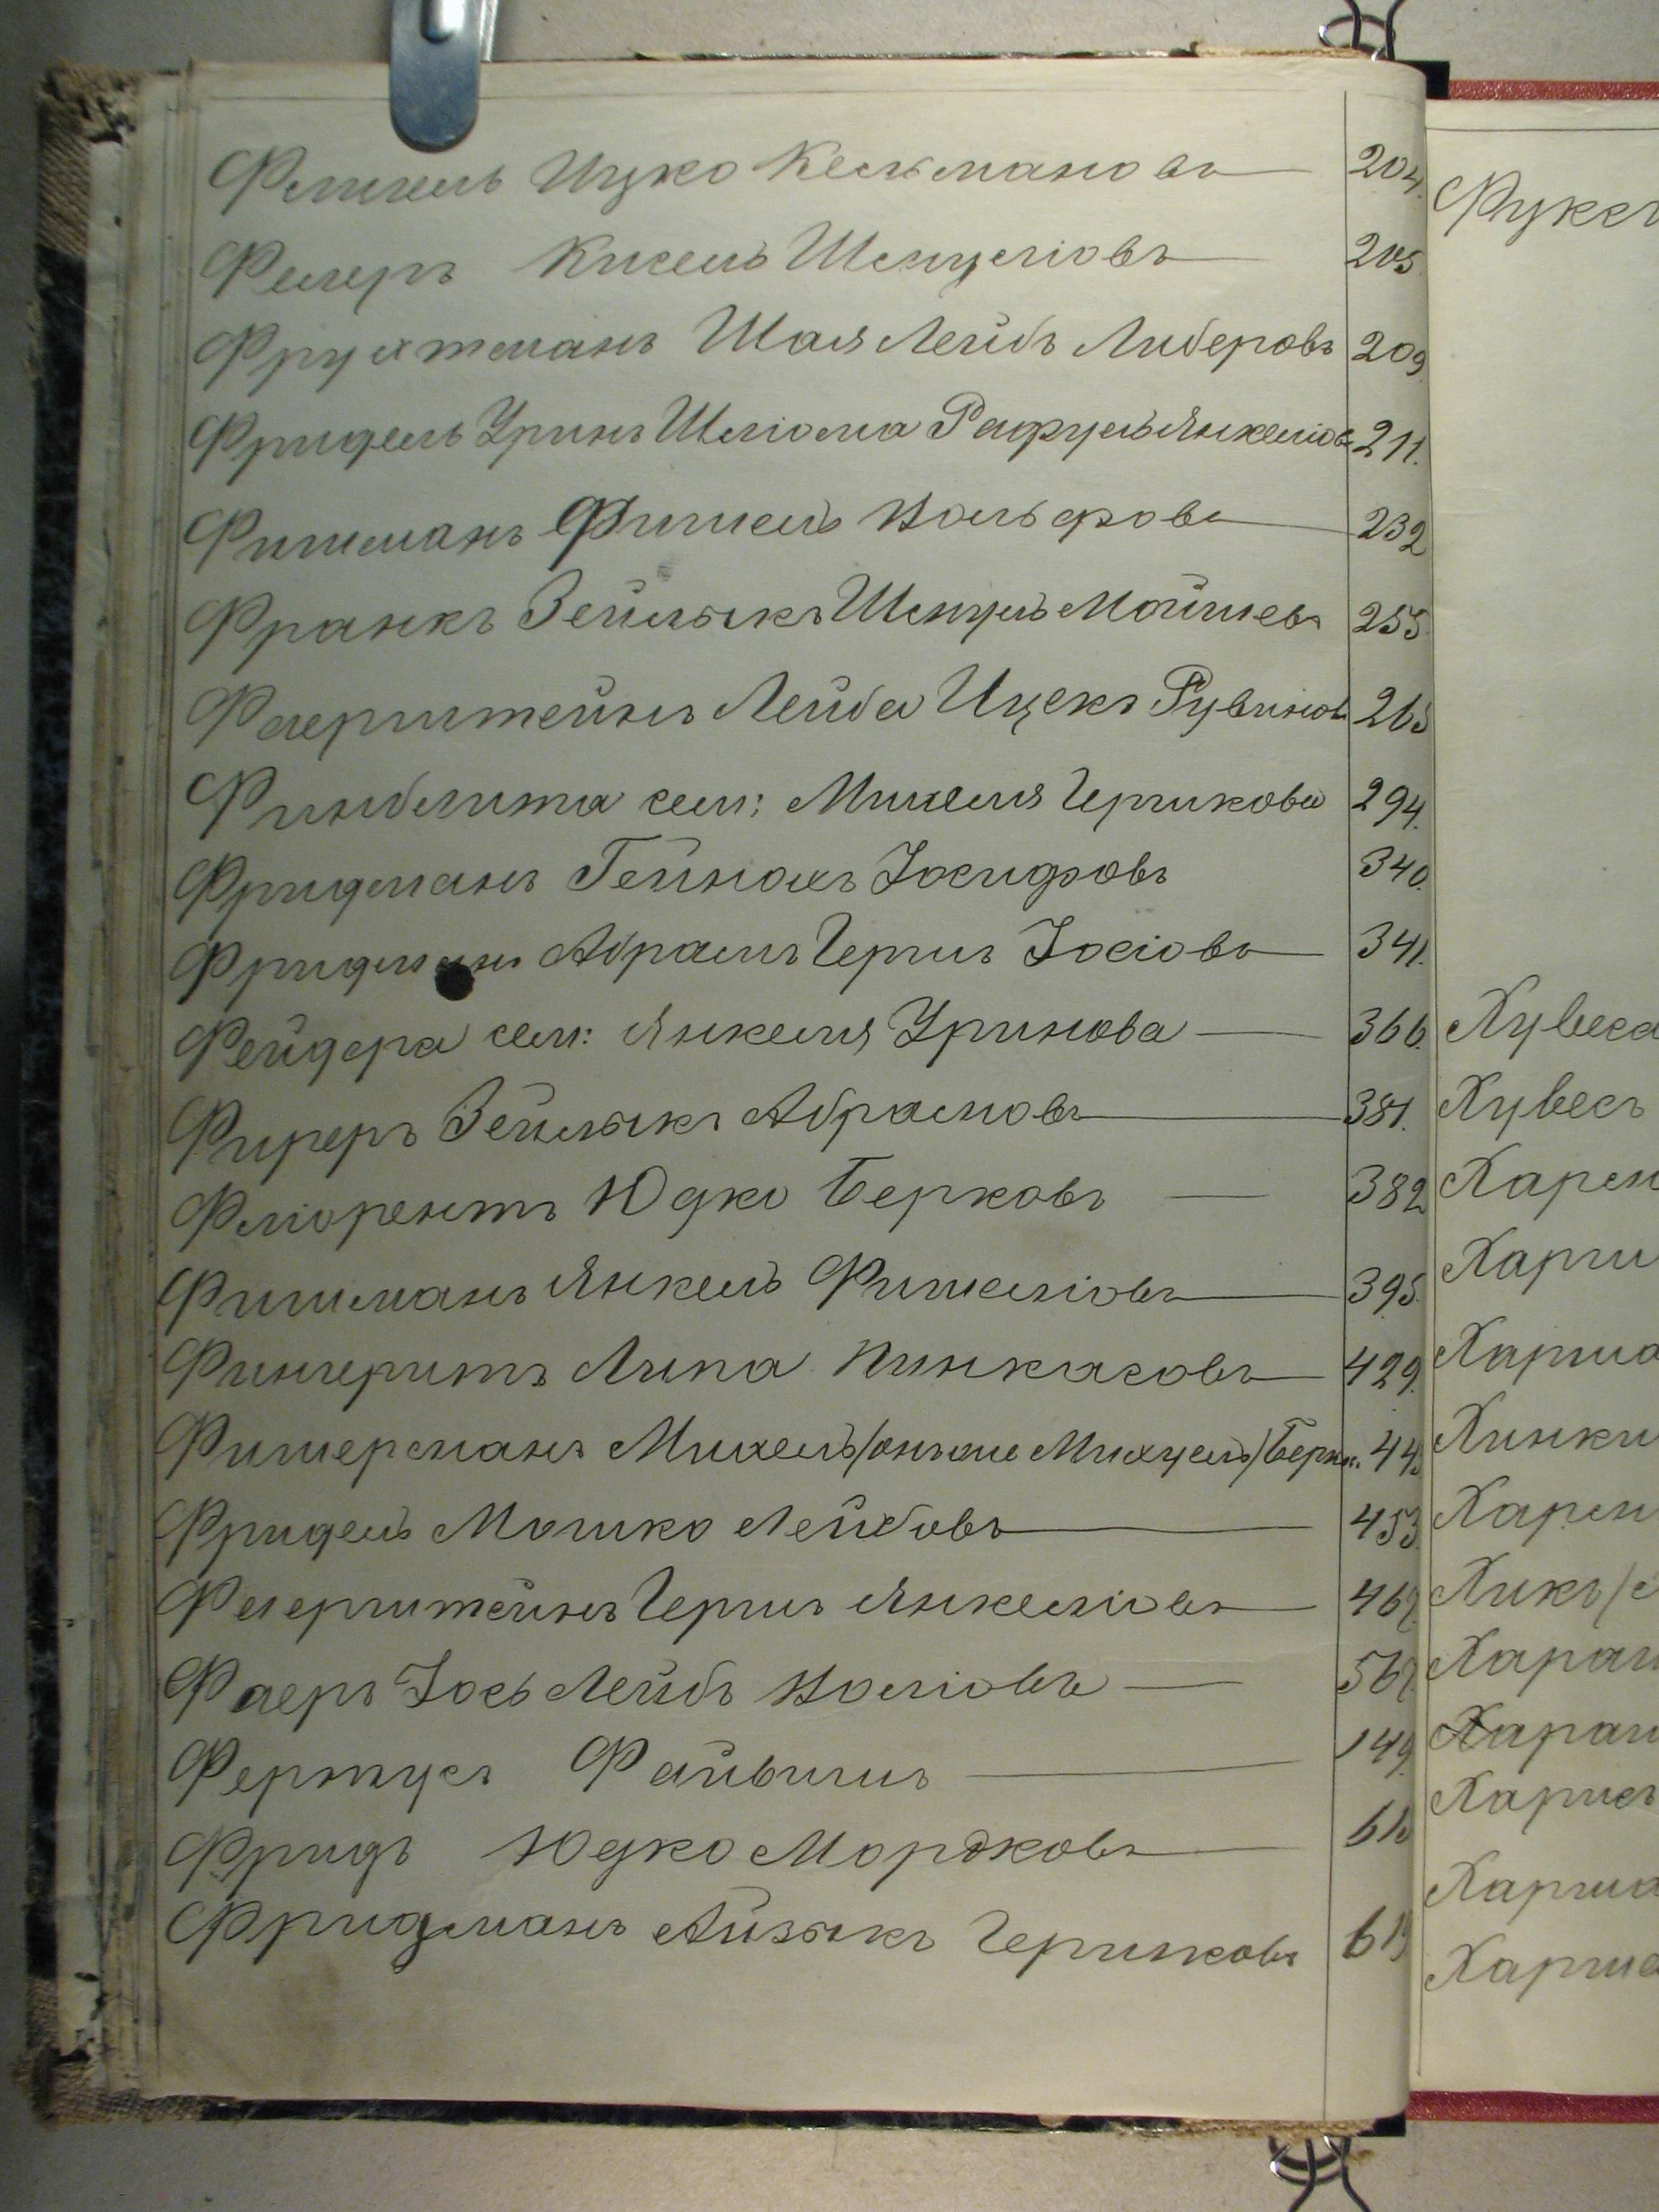 Флигель Ицко Кельмановъ 204.
Фелеръ Кисель Шмулiовъ 205.
Фрухтманъ Шая Лейбъ Либеровъ 209.
Фридель Уринъ Шлiома Рафуль Янкелiовъ 211.
Фишманъ Фишель Вольфовъ 232
Франкъ Зейлыкъ Шмуль Мойшевъ 255.
Фаерштейнъ Лейба Ицекъ Рувиновъ 265
Финблита сем: Михеля Гершкова 294.
Фридманъ Гейнохъ Iосифовъ 340.
Фридманъ Абрамъ Гершъ Iосiовъ 341.
Фейдера сем: Янкеля Уринова 366.
Фиреръ Зейлыкъ Абрамовъ 381.
Флiорентъ Юдко Берковъ 382
Фишманъ Янкель Фишелiовъ 395.
Фингеритъ Липа Пинкасовъ 429.
Фишерманъ Михель/онъ же Михуель/Берк. 443
Фридель Мошко Лейбовъ 453.
Фаерштейнъ Гершъ Янкелiовъ 467.
Фаеръ Iось Лейбъ Волiовъ 567.
Фертусъ Файвишъ 149.
Фридъ Юдко Мордковъ 618
Фридманъ Айзыкъ Гершковъ 619
Фуксъ
Хувеса
Хувесъ